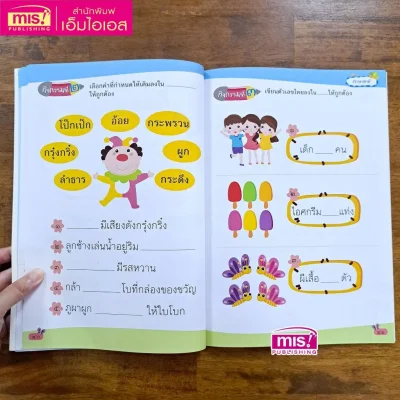 mis!
PUBLISHING
สำนักพิมพ์
เอ็มไอเอส
กิจกรรมที่
เลือกคำที่กำหนดให้เติมลงใน
ให้ถูกต้อง
โป๊กเป๊ก
อ้อย
กระพรวน
กรุ๋งกริ๋ง
ผูก
ลำธาร
กระดึง
มีเสียงดังกรุ๋งกริ๋ง
ลูกช้างเล่นน้ำอยู่ริม
มีรสหวาน
กล้า โบที่กล่องของขวัญ
ภูผาผูก ให้ใบโบก
กิจกรรมที่
เขียนตัวเลขไทยลงใน ให้ถูกต้อง
เด็ก คน
ไอศกรีม แท่ง
ผีเสื้อ ตัว
mis!
PUBLISHING